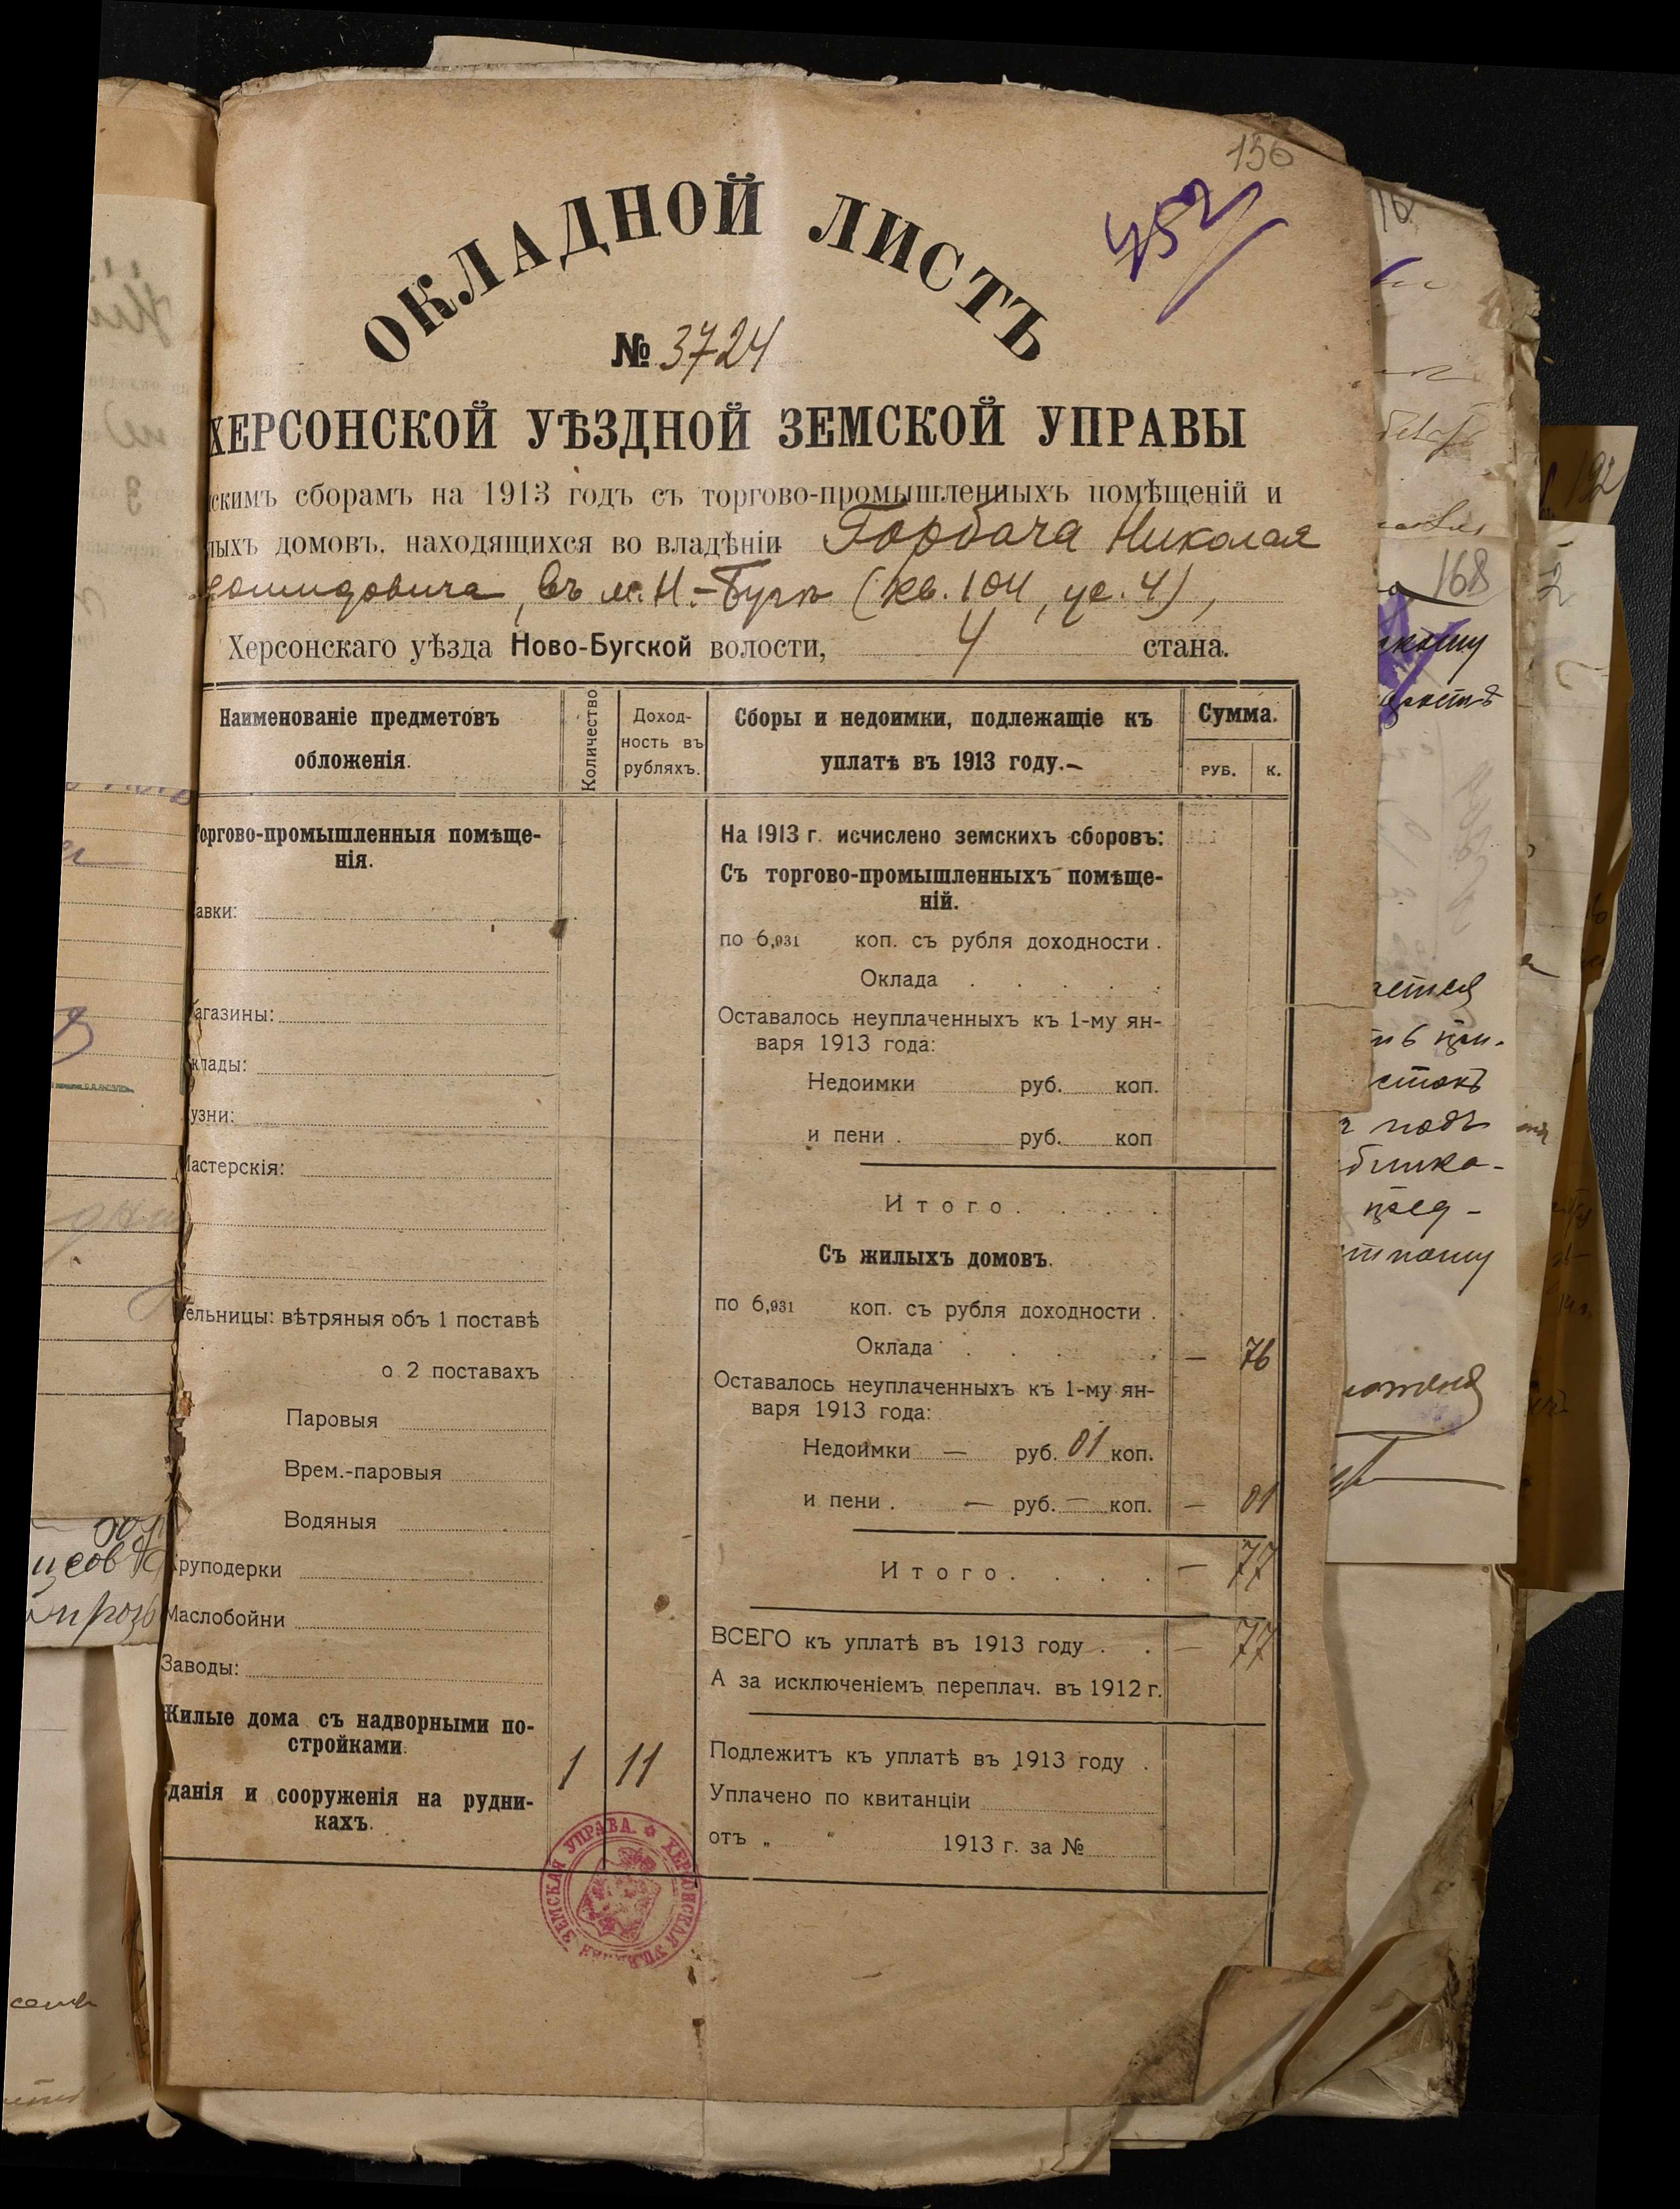 136
452
ОКЛАДНОЙ ЛИСТЪ
№ 3724
ХЕРСОНСКОЙ УѢЗДНОЙ ЗЕМСКОЙ УПРАВЫ
скимъ сборамъ на 1913 годъ съ торгово-промышленныхъ помѣщеній и
лыхъ домовъ, находящихся во владѣніи Горбача Николая
въ м. Н.-Бугѣ (кв. 104, ус. 4),
Херсонскаго уѣзда Ново-Бугской волости, 4 стана.
Наименованіе предметовъ
обложенія.
Количество
Доход-
ность въ
рубляхъ.
Сборы и недоимки, подлежащіе къ
уплатѣ въ 1913 году.—
Сумма.
РУБ. К.
Торгово-промышленныя помѣще-
нія.
авки:
агазины:
клады:
узни:
Мастерскія:
Мельницы: вѣтряныя объ 1 поставѣ
о 2 поставахъ
Паровыя
Врем.-паровыя
Водяныя
Круподерки
Маслобойни
Заводы:
Жилые дома съ надворными по-
стройками. 1 11
Зданія и сооруженія на рудни-
кахъ.
На 1913 г. исчислено земскихъ сборовъ:
Съ торгово-промышленныхъ помѣще-
ній.
по 6,931 коп. съ рубля доходности .
Оклада . . . . .
Оставалось неуплаченныхъ къ 1-му ян-
варя 1913 года:
Недоимки руб. коп.
и пени . руб. коп
Итого. . . .
Съ жилыхъ домовъ.
по 6,931 коп. съ рубля доходности .
Оклада . . . . — 76
Оставалось неуплаченныхъ къ 1-му ян-
варя 1913 года:
Недоимки — руб. 01 коп.
и пени . — руб. — коп. — 01
Итого. . . . — 77
ВСЕГО къ уплатѣ въ 1913 году . . — 77
А за исключеніемъ переплач. въ 1912 г.
Подлежитъ къ уплатѣ въ 1913 году .
Уплачено по квитанціи
отъ „ “ 1913 г. за №
ЗЕМСКАЯ УПРАВА. ХЕРСОНСКАЯ
192
168